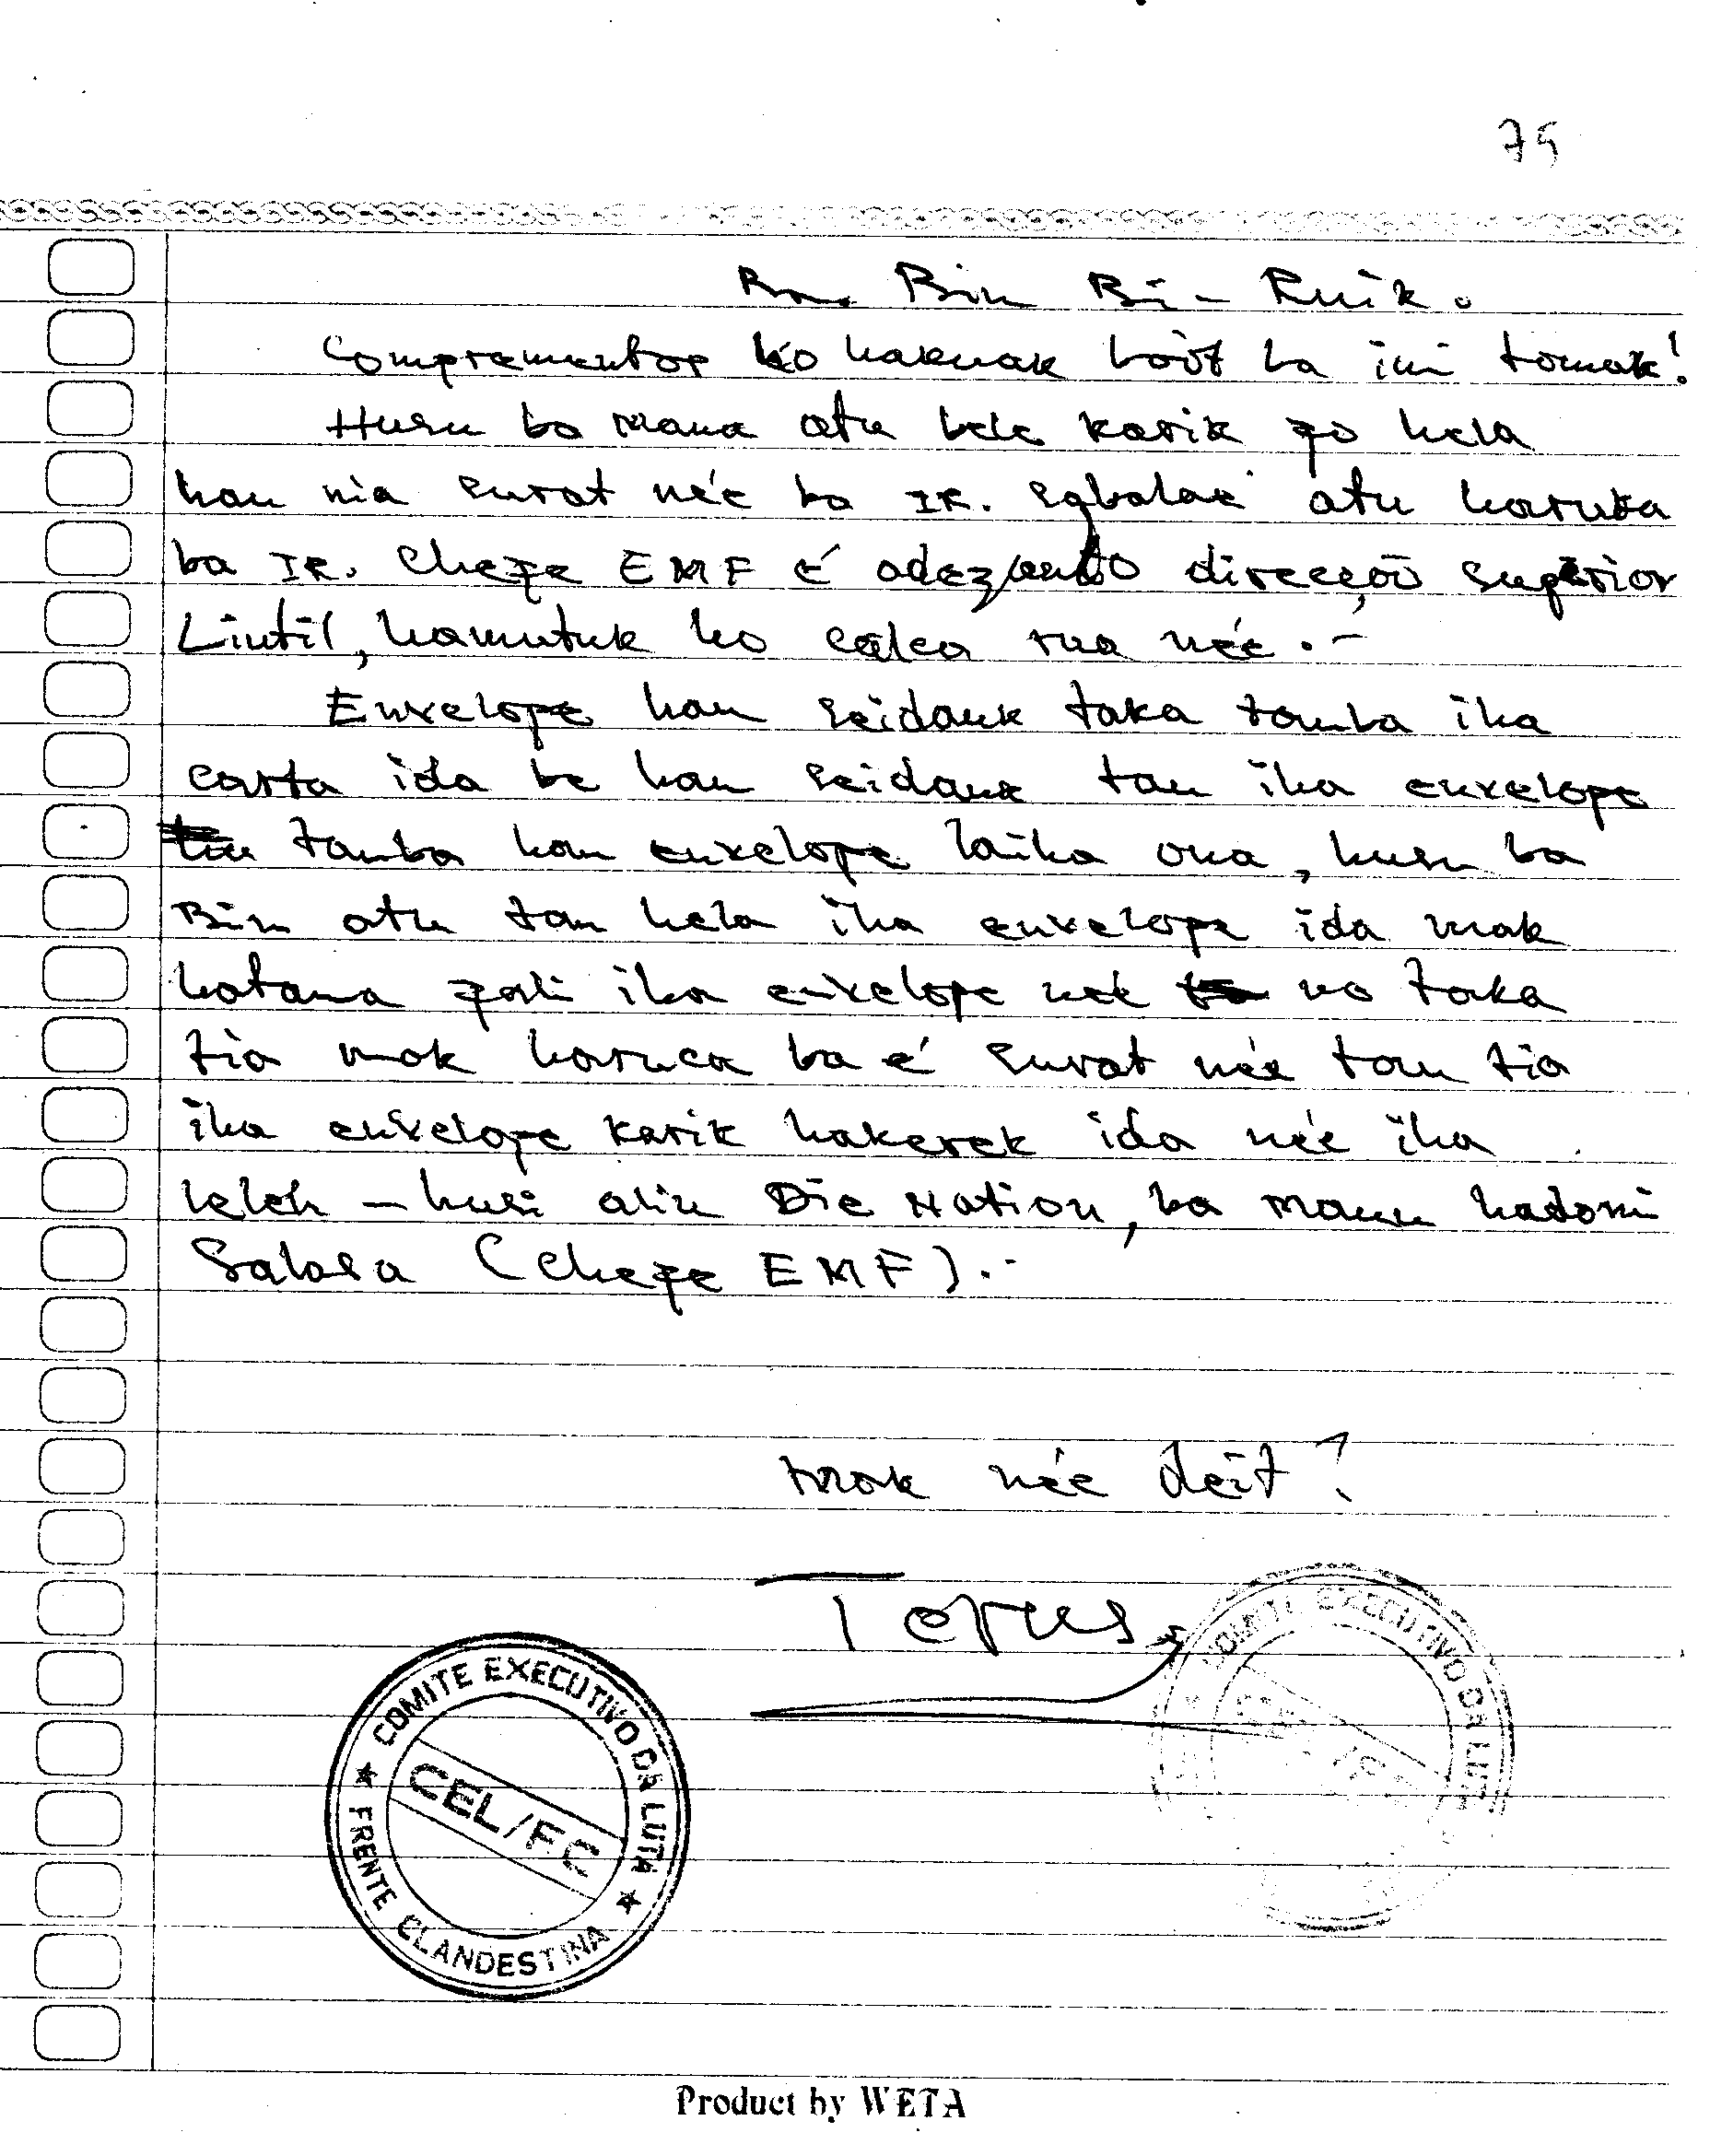 75
Bin Bi-Ruik.
Comprementos ho haknak boót ba imi tomak!
Husu ba Mana atu bele karik fo hela
hau nia surat né'e ba IR. Sabalae atu haruka
ba IR. Chefe EMF é adezando direcção superior
Liutil, hamutuk ho calca rua né'e.-
Envelope hau seidauk taka tamba iha
carta ida be hau seidauk tau iha envelope
tamba hau envelope laiha ona, husu ba
Bin atu tau hela iha envelope ida mak
hatama fali iha envelope neé no taka
tia mak haruca ba é surat né'e tau tia
iha envelope karik hakerek ida né'e iha
leten - husi alin Die Nation, ba Maun hadomi
Sabasa (Chefe EMF).-
mak né'e deit!
COMITE EXECUTIVO DA LUTA
CEL/FC
FRENTE CLANDESTINA
COMITE EXECUTIVO DA LUTA
Product by WETA